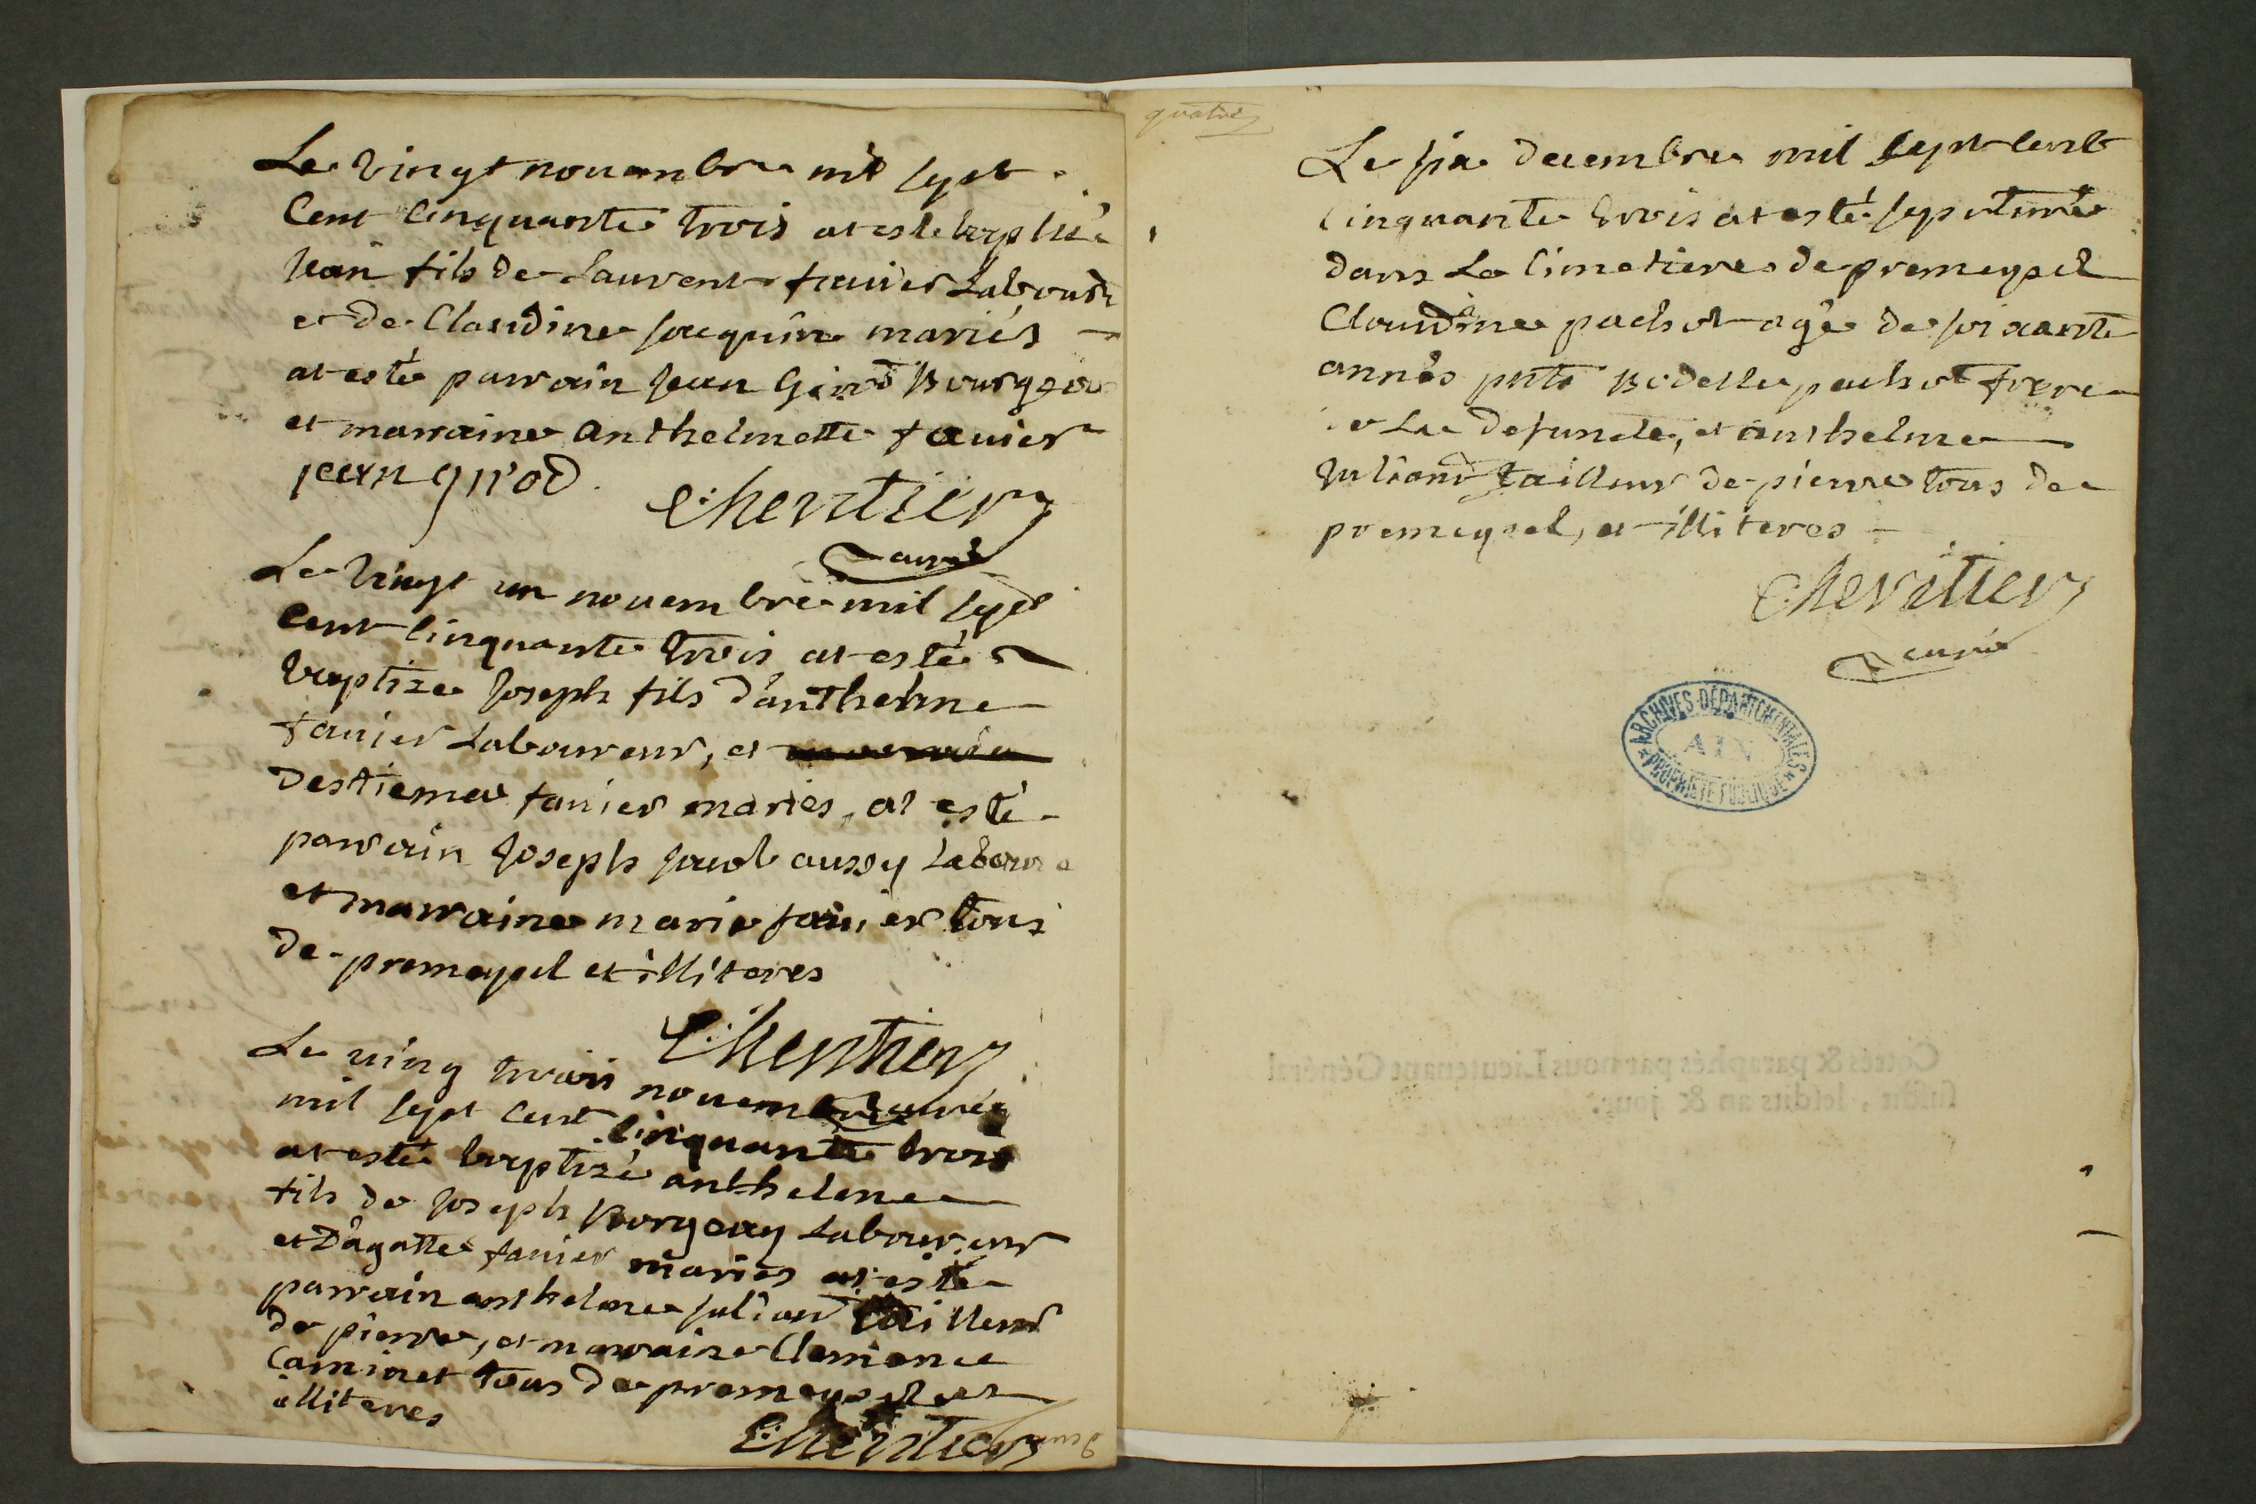 Le vingt nouanbre mil sept
Cent Cinquante trois at esté baptizé
Jean fils de Laurent fauier Labour
et de Claudine Jacquin mariés
at esté parrain Jean Girod Bourgeo
et marraine anthelmette fauier
jean girod
curé
Le vingt un nouembre mil sept
Cent Cinquante trois at esté
baptize Joseph fils d'anthelme
fauier Laboureur, et
Destiema fauier mariés, at esté
parrain Joseph aussy Laboure
et marraine marie fauier tous
de premeysel et illiteres
Le ving trois nouembre
curé
mil sept Cent Cinquante trois
at esté baptizé anthelme
fils de Joseph Borgeay Laboureur
et D'agatte fauier mariés at esté
parrain anthelme Juliand tailleur
de pierre, et marraine Clemence
Caminet tous de premeysel et
illiteres
curé
quatre
Le six decembre mil sept Cent
Cinquante trois at esté sepulturé
dans Le Cimetiere de premeysel
Claudine pachot agé de soixante
annés pnts pachot frere
de La defuncte, et anthelme
Juliand tailleur de pierre tous de
premeysel, et illiteres
curé
ARCHIVES DÉPARTEMENTALES
AIN
PROPRIÉTÉ PUBLIQUE
Cottés & paraphés par nous Lieutenant Général
susdit, lesdits an & jour.